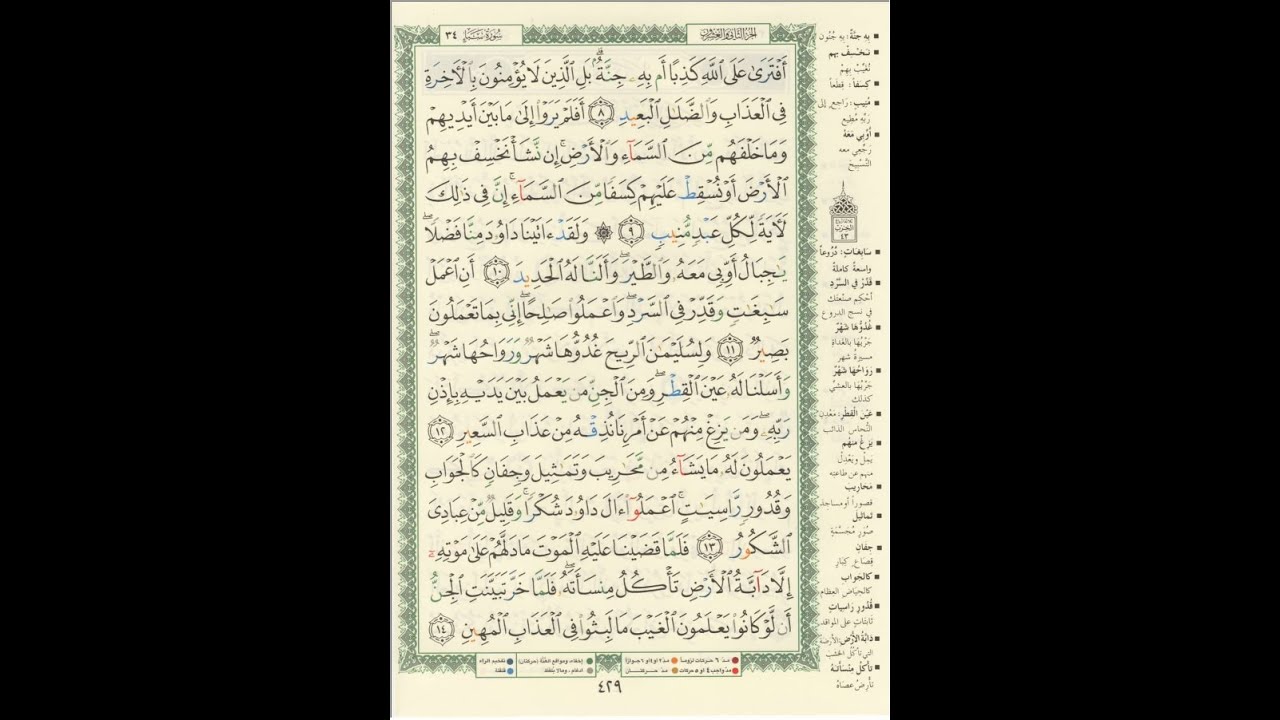 سورة سبإ ٣٤
الجزء الثاني والعشرون
أَفْتَرَىٰ عَلَى ٱللَّهِ كَذِبًا أَم بِهِۦ جِنَّةٌۗ بَلِ ٱلَّذِينَ لَا يُؤْمِنُونَ بِٱلْأَخِرَةِ
فِى ٱلْعَذَابِ وَٱلضَّلَٰلِ ٱلْبَعِيدِ ٨ أَفَلَمْ يَرَوْا۟ إِلَىٰ مَا بَيْنَ أَيْدِيهِمْ
وَمَا خَلْفَهُم مِّنَ ٱلسَّمَآءِ وَٱلْأَرْضِۚ إِن نَّشَأْ نَخْسِفْ بِهِمُ
ٱلْأَرْضَ أَوْ نُسْقِطْ عَلَيْهِمْ كِسَفًا مِّنَ ٱلسَّمَآءِۚ إِنَّ فِى ذَٰلِكَ
لَأَيَةً لِّكُلِّ عَبْدٍ مُّنِيبٍ ٩ ۞ وَلَقَدْ ءَاتَيْنَا دَاوُۥدَ مِنَّا فَضْلًاۖ
يَٰجِبَالُ أَوِّبِى مَعَهُۥ وَٱلطَّيْرَۖ وَأَلَنَّا لَهُ ٱلْحَدِيدَ ١٠ أَنِ ٱعْمَلْ
سَٰبِغَٰتٍ وَقَدِّرْ فِى ٱلسَّرْدِۖ وَٱعْمَلُوا۟ صَٰلِحًاۖ إِنِّى بِمَا تَعْمَلُونَ
بَصِيرٌ ١١ وَلِسُلَيْمَٰنَ ٱلرِّيحَ غُدُوُّهَا شَهْرٌ وَرَوَاحُهَا شَهْرٌۖ
وَأَسَلْنَا لَهُۥ عَيْنَ ٱلْقِطْرِۖ وَمِنَ ٱلْجِنِّ مَن يَعْمَلُ بَيْنَ يَدَيْهِ بِإِذْنِ
رَبِّهِۦۖ وَمَن يَزِغْ مِنْهُمْ عَنْ أَمْرِنَا نُذِقْهُ مِنْ عَذَابِ ٱلسَّعِيرِ ١٢
يَعْمَلُونَ لَهُۥ مَا يَشَآءُ مِن مَّحَٰرِيبَ وَتَمَٰثِيلَ وَجِفَانٍ كَٱلْجَوَابِ
وَقُدُورٍ رَّاسِيَٰتٍۚ ٱعْمَلُوٓا۟ ءَالَ دَاوُۥدَ شُكْرًاۚ وَقَلِيلٌ مِّنْ عِبَادِىَ
ٱلشَّكُورُ ١٣ فَلَمَّا قَضَيْنَا عَلَيْهِ ٱلْمَوْتَ مَا دَلَّهُمْ عَلَىٰ مَوْتِهِۦٓ
إِلَّا دَآبَّةُ ٱلْأَرْضِ تَأْكُلُ مِنسَأَتَهُۥۖ فَلَمَّا خَرَّ تَبَيَّنَتِ ٱلْجِنُّ
أَن لَّوْ كَانُوا۟ يَعْلَمُونَ ٱلْغَيْبَ مَا لَبِثُوا۟ فِى ٱلْعَذَابِ ٱلْمُهِينِ ١٤
بِهِ جِنَّةٌ: بِهِ جُنُون
نَخْسِفْ بِهِم
نُغَيِّبْ بِهِمْ
كِسَفاً: قِطَعاً
مُنِيبٍ: رَاجِعٍ إلى
رَبِّهِ مُطِيعٍ
أَوِّبِي مَعَهُ
رَجِّعِي معه
التَّسْبِيحَ
الحزب
٤٣
سَابِغَاتٍ: دُرُوعاً
واسعةً كاملةً
قَدِّرْ فِي السَّرْدِ
أحْكِم صَنْعَتَك
في نسج الدروع
غُدُوُّهَا شَهْرٌ
جَرْيُهَا بالغَدَاةِ
مسيرة شهر
رَوَاحُهَا شَهْرٌ
جَرْيُهَا بالعَشِيِّ
كذلك
عَيْنَ الْقِطْرِ: مَعْدِن
النُّحاس الذائب
يَزِغْ مِنْهُم
يَمِلْ ويَعْدِلْ
منهم عن طاعته
مَحَارِيبَ
قصوراً أو مساجد
تَمَاثِيلَ
صُوَرٍ مُجَسَّمَة
جِفَانٍ
قِصَاعٍ كِبَار
كَالجَوَابِ
كالحِيَاضِ العِظَام
قُدُورٍ رَاسِيَاتٍ
ثابتاتٍ على المواقد
دَابَّةُ الأَرْضِ: الأرَضَة
التي تأكلُ الخشب
تَأْكُلُ مِنْسَأَتَهُ
تأرِضُ عصاهُ
مدّ ٦ حركات لزوماً
مدّ ٢ أو ٤ أو ٦ جوازاً
إخفاء، ومواقع الغنّة (حركتان)
تفخيم الراء
مدّ واجب ٤ أو ٥ حركات
مدّ حركتان
ادغام، وما لا يلفظ
قلقلة
٤٢٩